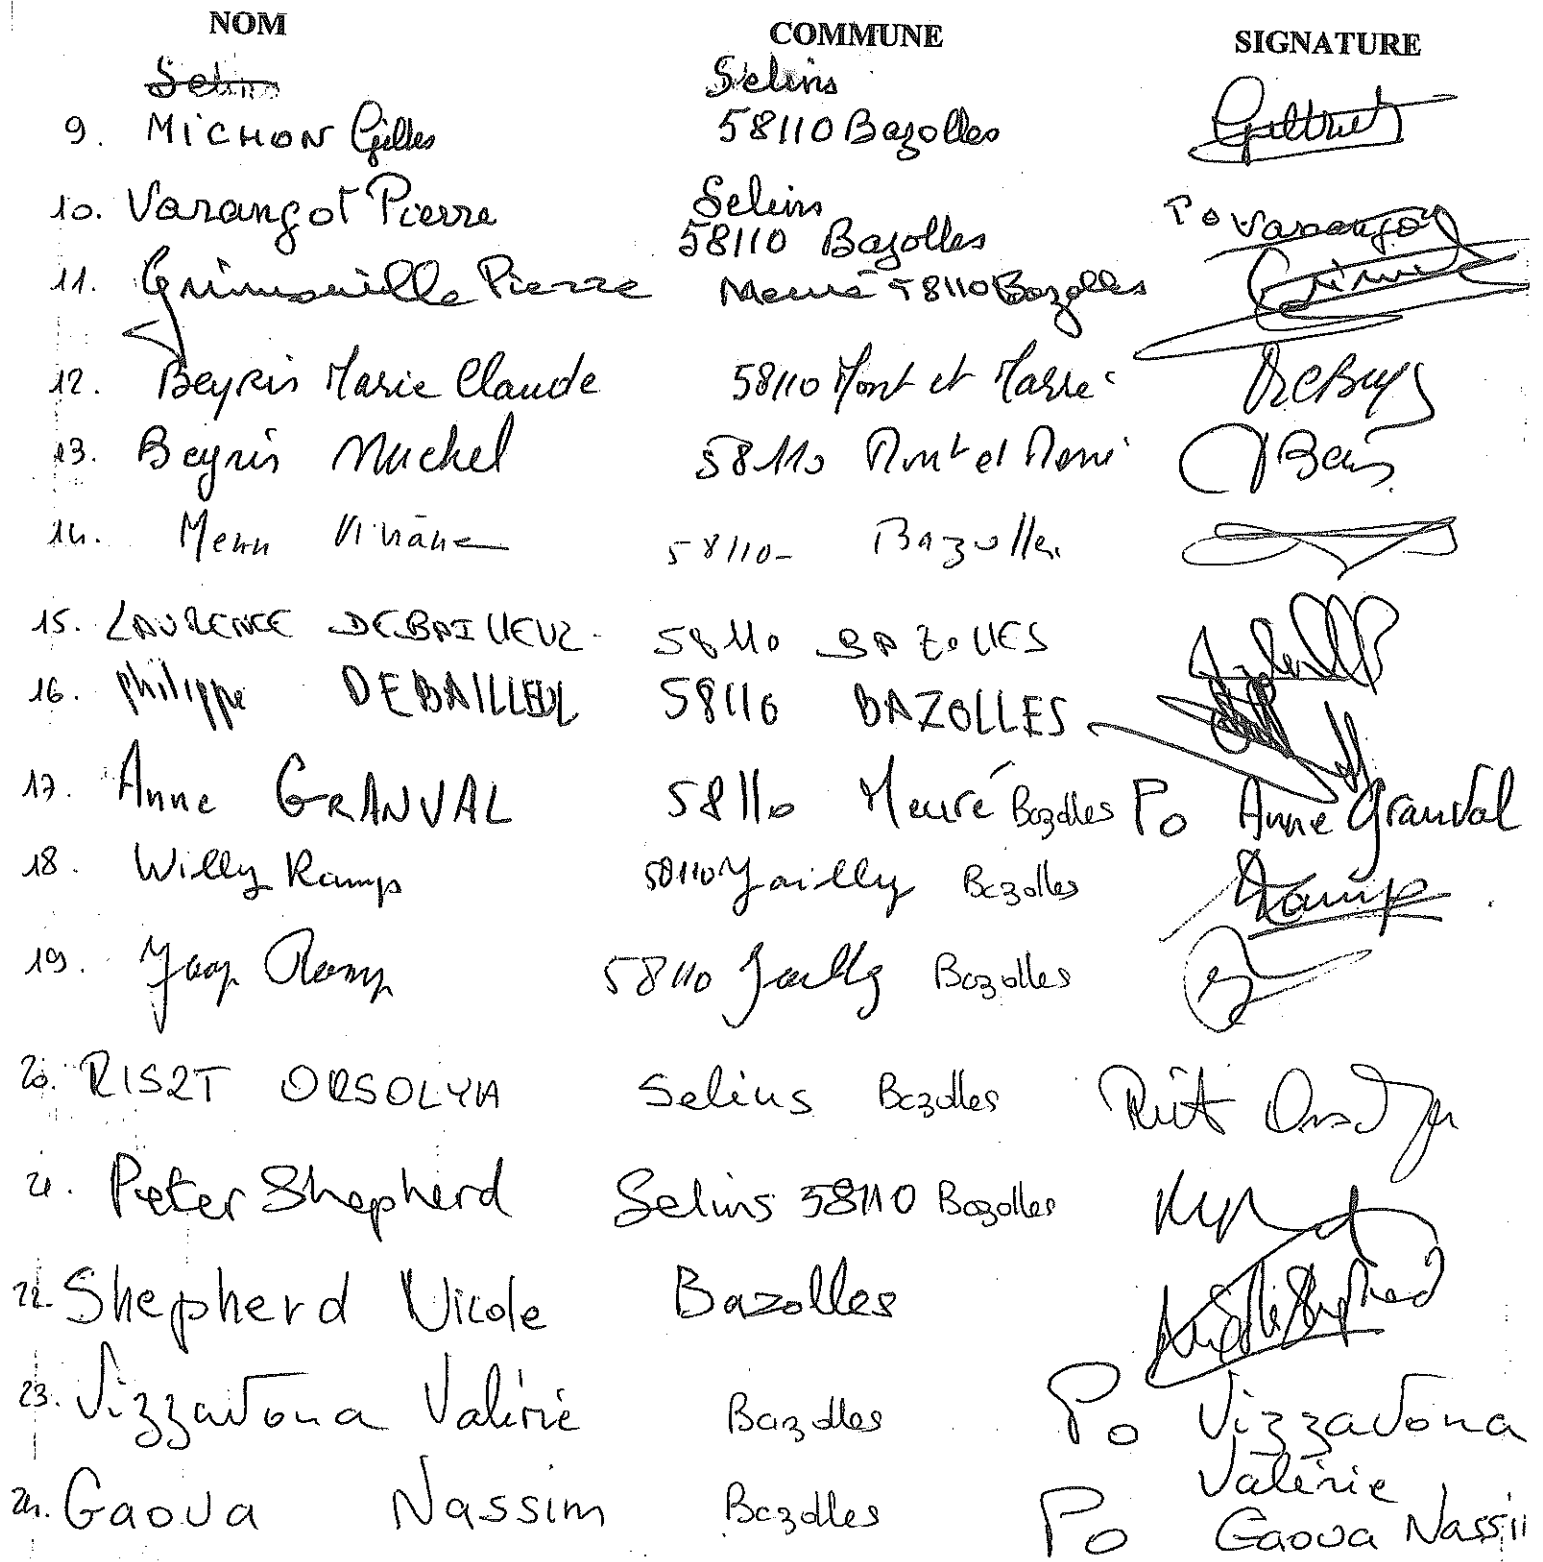 NOM COMMUNE SIGNATURE
Selins Selins
9. MICHON Gilles 58110 Bazolles
Selins
10. Varangot Pierre 58110 Bazolles Po Varangot
11. Grimouille Pierre Meuré 58110 Bazolles
12. Beyris Marie Claude 58110 Mont et Marré
13. Beyris Michel 58110 Mont et Marré
14. Menn Viviane 58110 - Bazolles
15. LAURENCE DEBAILLEUL 58110 BAZOLLES
16. philippe DEBAILLEUL 58110 BAZOLLES
17. Anne GRANVAL 58110 Meuré Bazolles Po Anne Granval
18. Willy Kamp 58110 Jailly Bazolles Kamp
19. Jaap 58110 Jailly Bazolles
20. RISZT ORSOLYA Selins Bazolles
21. Peter Shepherd Selins 58110 Bazolles
22. Shepherd Nicole Bazolles
23. Vizzavona Valérie Bazolles Po Vizzavona
Valérie
24. Gaoua Nassim Bazolles Po Gaoua Nassi